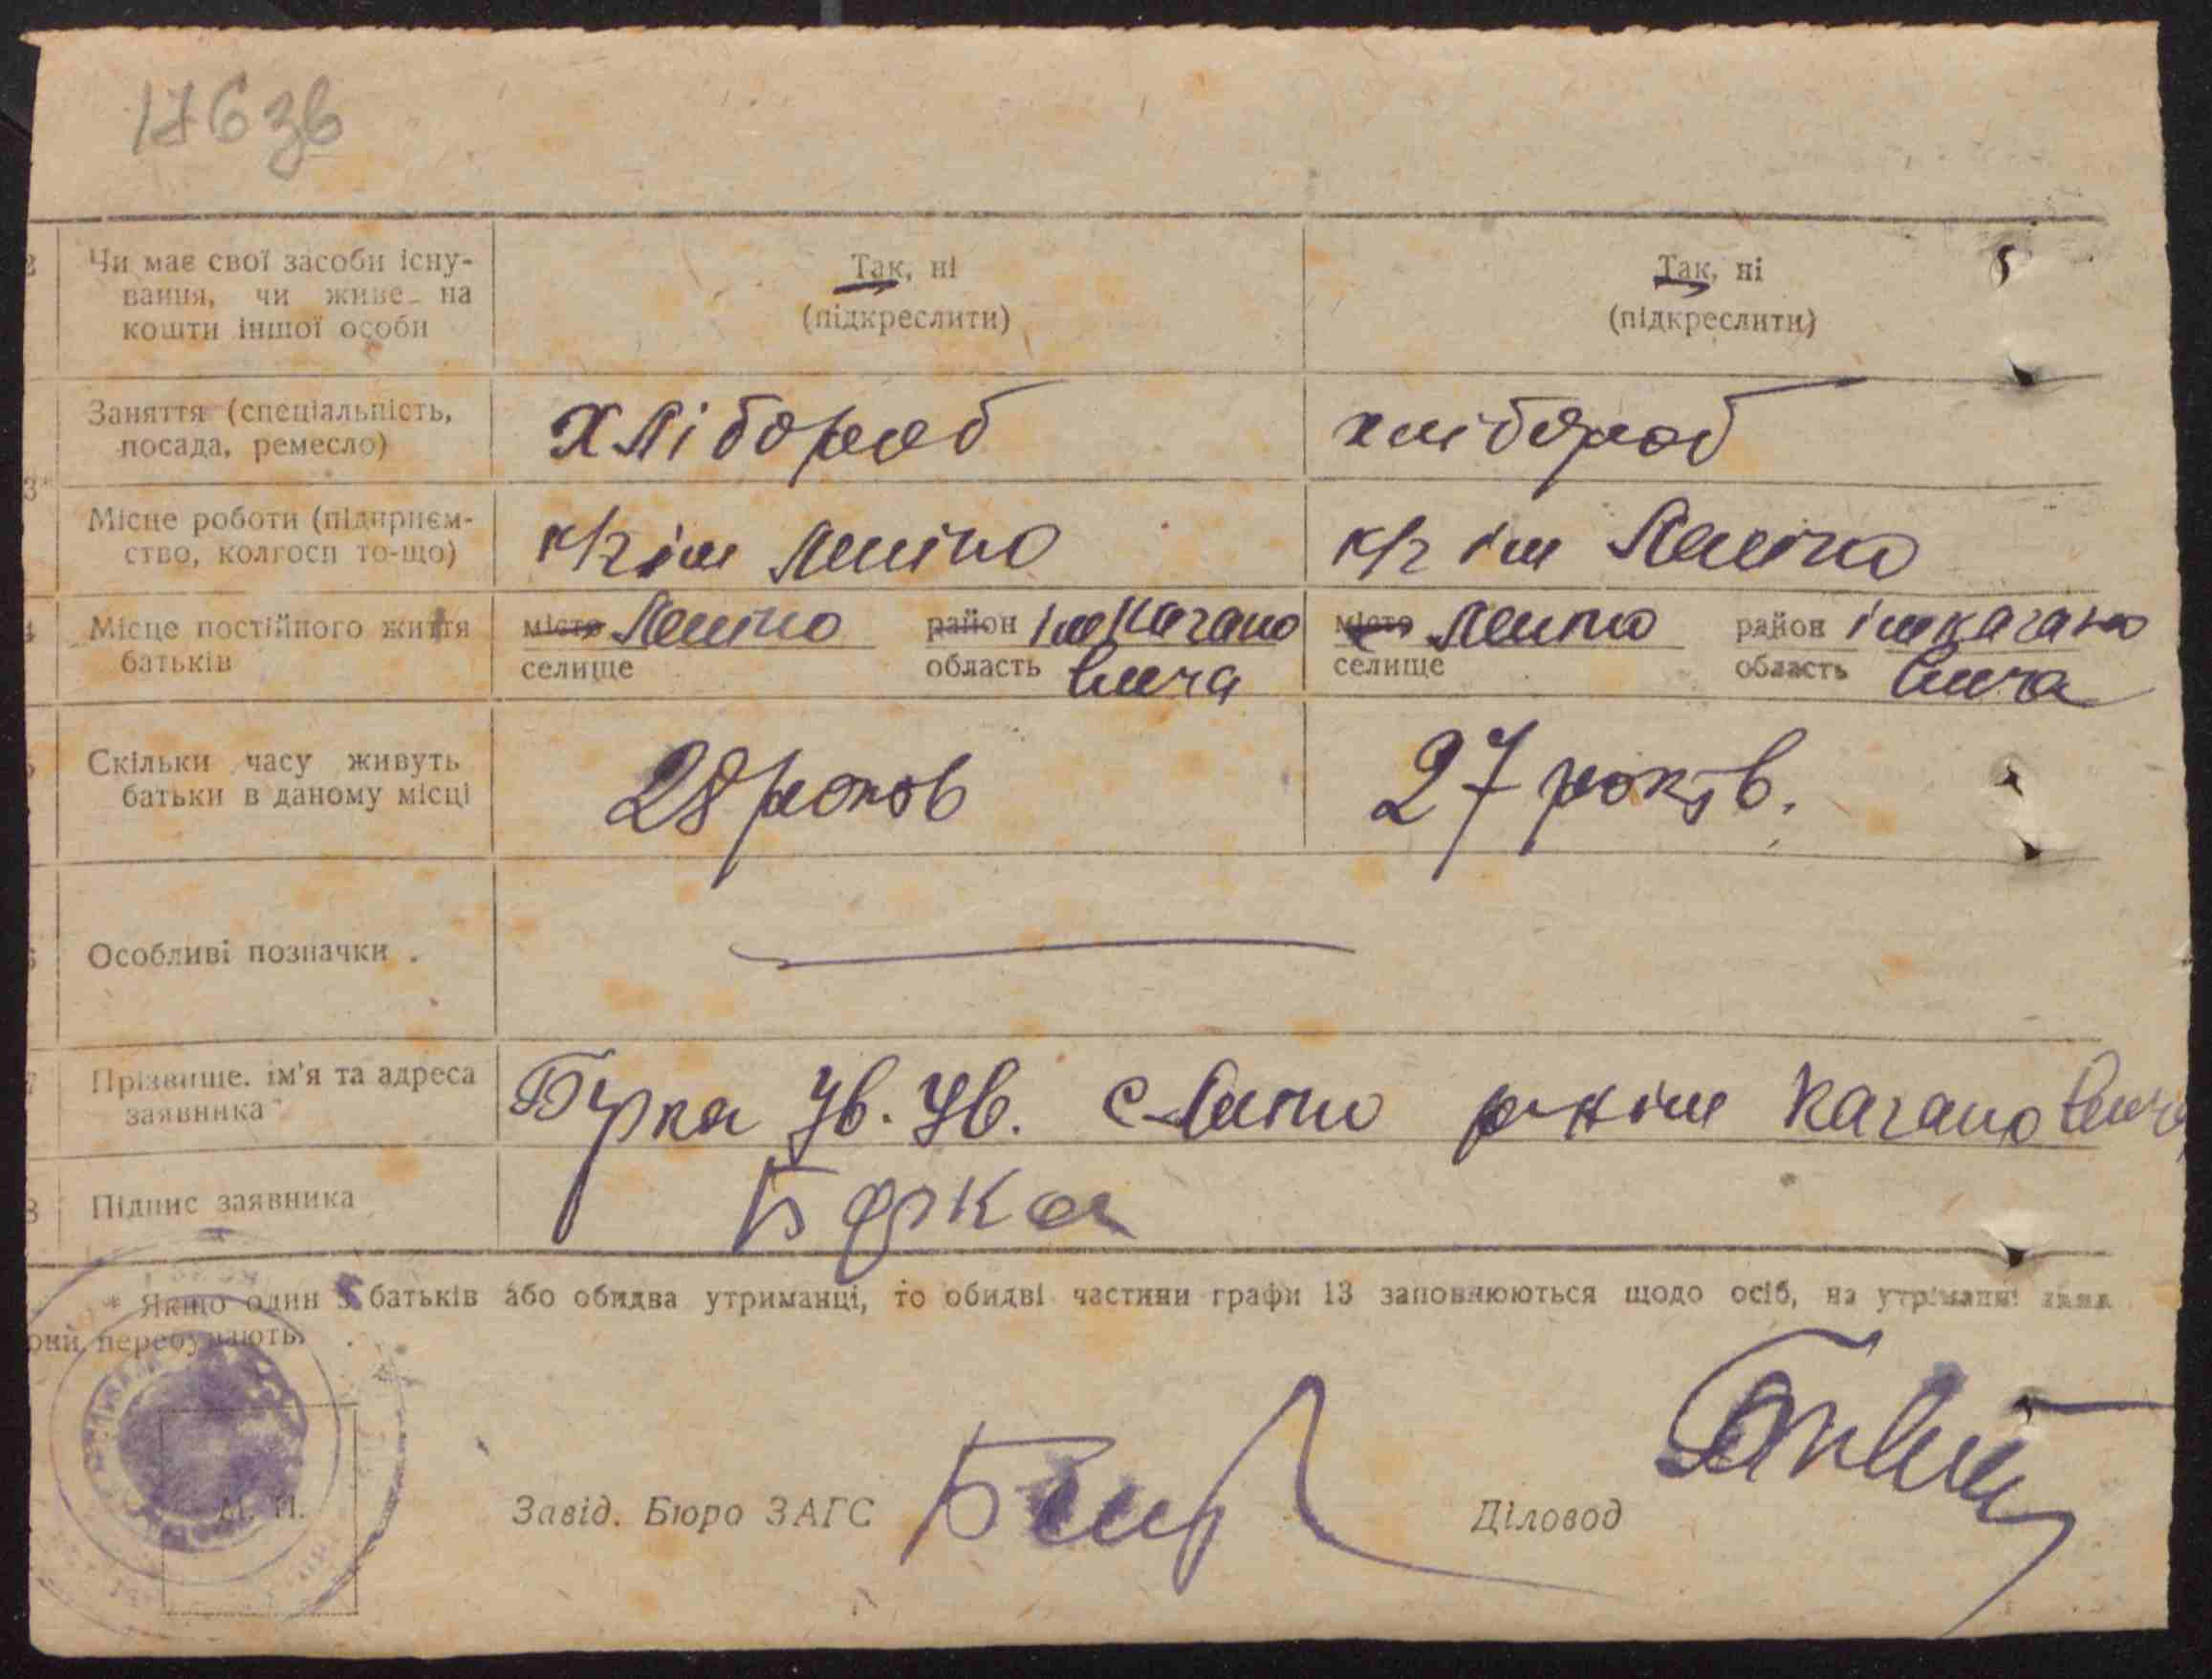 176 зв
Чи має свої засоби існу-
вання, чи живе на
кошти іншої особи
Так, ні
(підкреслити)
Так, ні
(підкреслити)
Заняття (спеціальність,
посада, ремесло)
Хлібороб
хлібороб
3*
Місце роботи (підприєм-
ство, колгосп то-що)
к/г ім Леніно
к/г ім Леніно
4 Місце постійного життя
батьків
місто Леніно район ім Кагано
селище область вича
місто Леніно район ім Кагано
селище область вича
Скільки часу живуть
батьки в даному місці
28 роков
27 років.
Особливі позначки
7 Прізвище, ім'я та адреса
заявника
Бурка Ів. Ів. с Леніно р-н ім Кагановича
8 Підпис заявника
Бурка
* Якщо один з батьків або обидва утриманці, то обидві частини графи 13 заповнюються щодо осіб, на утриманні яких
вони перебувають.
М. П.
Завід. Бюро ЗАГС
Діловод